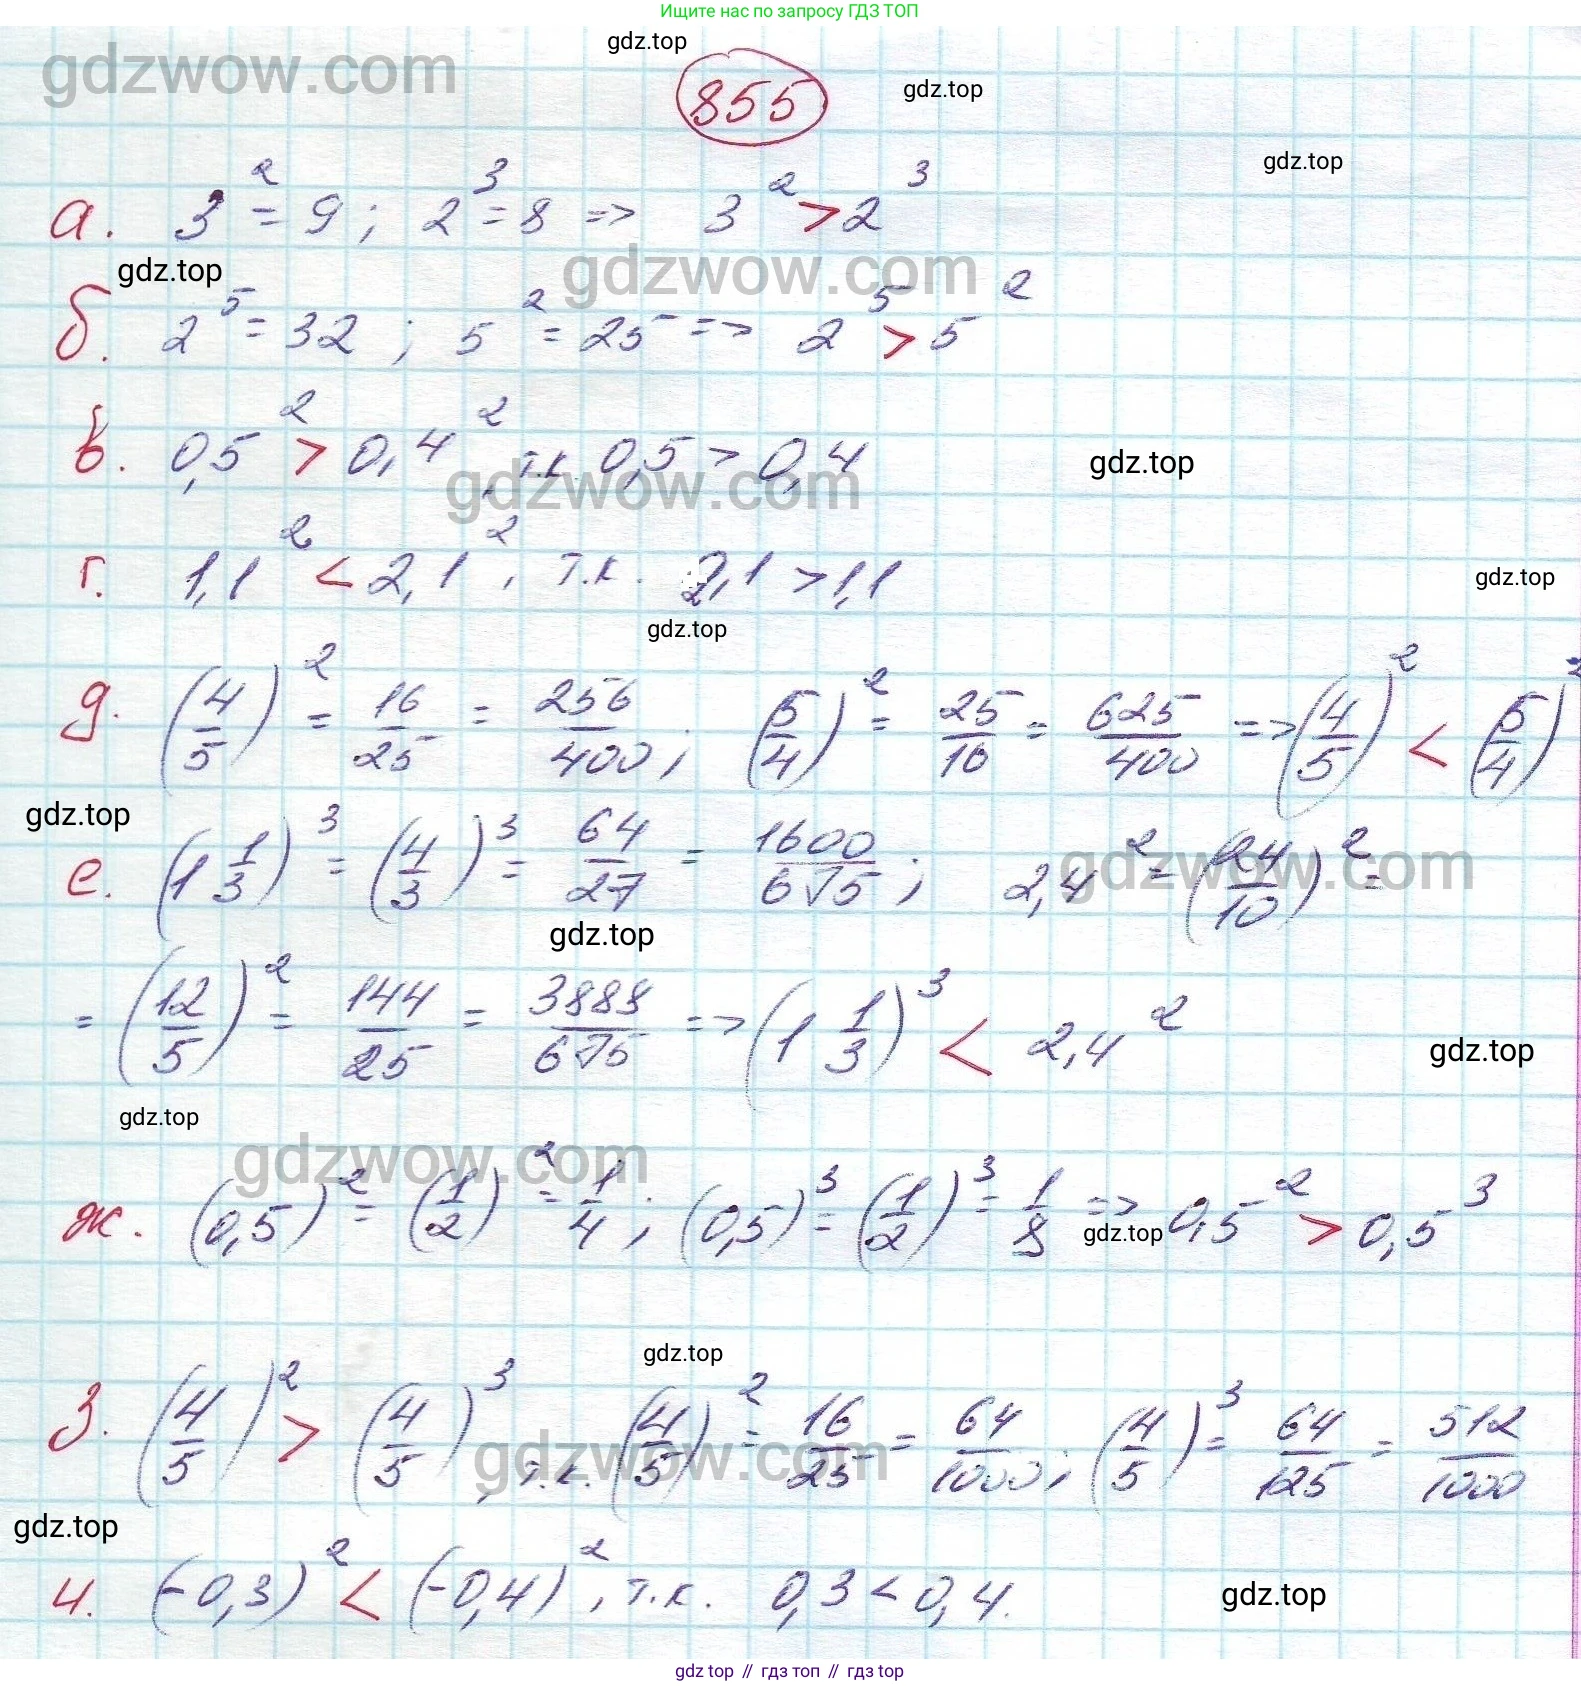 Ищите нас по запросу ГДЗ ТОП
gdz.top
gdzwow.com
855
gdz.top
gdz.top
а. 3² = 9; 2³ = 8 => 3² > 2³
gdz.top
gdzwow.com
б. 2⁵ = 32; 5² = 25 => 2⁵ > 5²
в. 0,5² > 0,4², т.к. 0,5 > 0,4
gdz.top
gdzwow.com
г. 1,1² < 2,1², т.к. 2,1 > 1,1
gdz.top
gdz.top
д. (4/5)² = 16/25 = 256/400; (5/4)² = 25/16 = 625/400 => (4/5)² < (5/4)²
gdz.top
е. (1 1/3)³ = (4/3)³ = 64/27 = 1600/675; 2,4² = (24/10)² =
gdzwow.com
gdz.top
= (12/5)² = 144/25 = 3888/675 => (1 1/3)³ < 2,4²
gdz.top
gdz.top
gdzwow.com
ж. (0,5)² = (1/2)² = 1/4; (0,5)³ = (1/2)³ = 1/8 => 0,5² > 0,5³
gdz.top
gdz.top
з. (4/5)² > (4/5)³, т.к. (4/5)² = 16/25 = 64/1000; (4/5)³ = 64/125 = 512/1000
gdzwow.com
gdz.top
и. (-0,3)² < (-0,4)², т.к. 0,3 < 0,4.
gdz.top
gdz top // гдз топ // гдз top